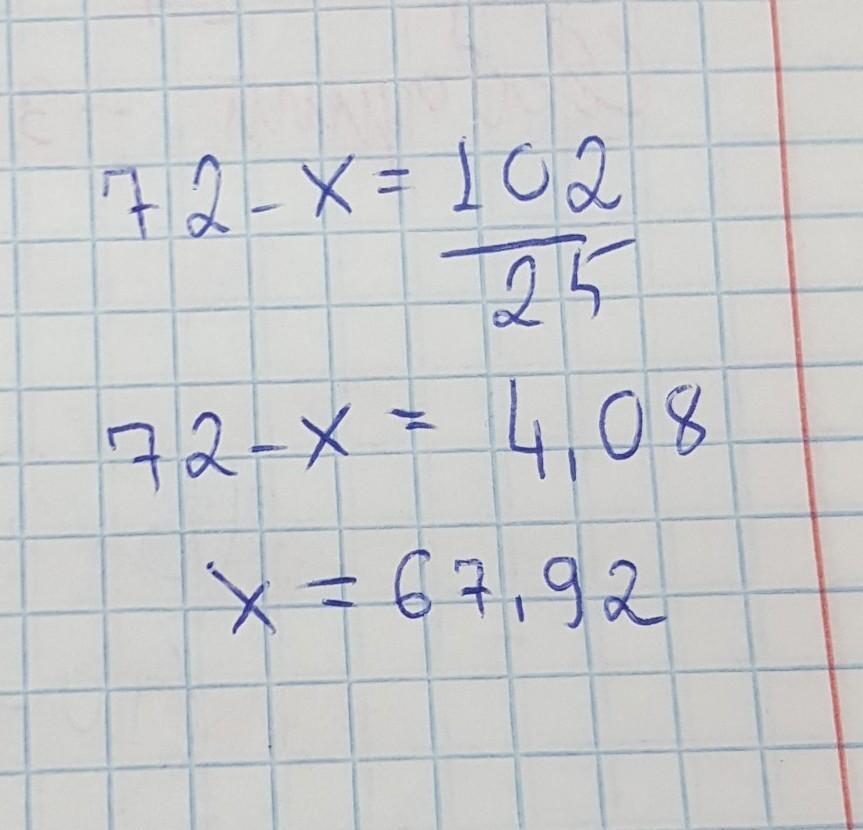 72 - x = 102/25
72 - x = 4,08
x = 67,92